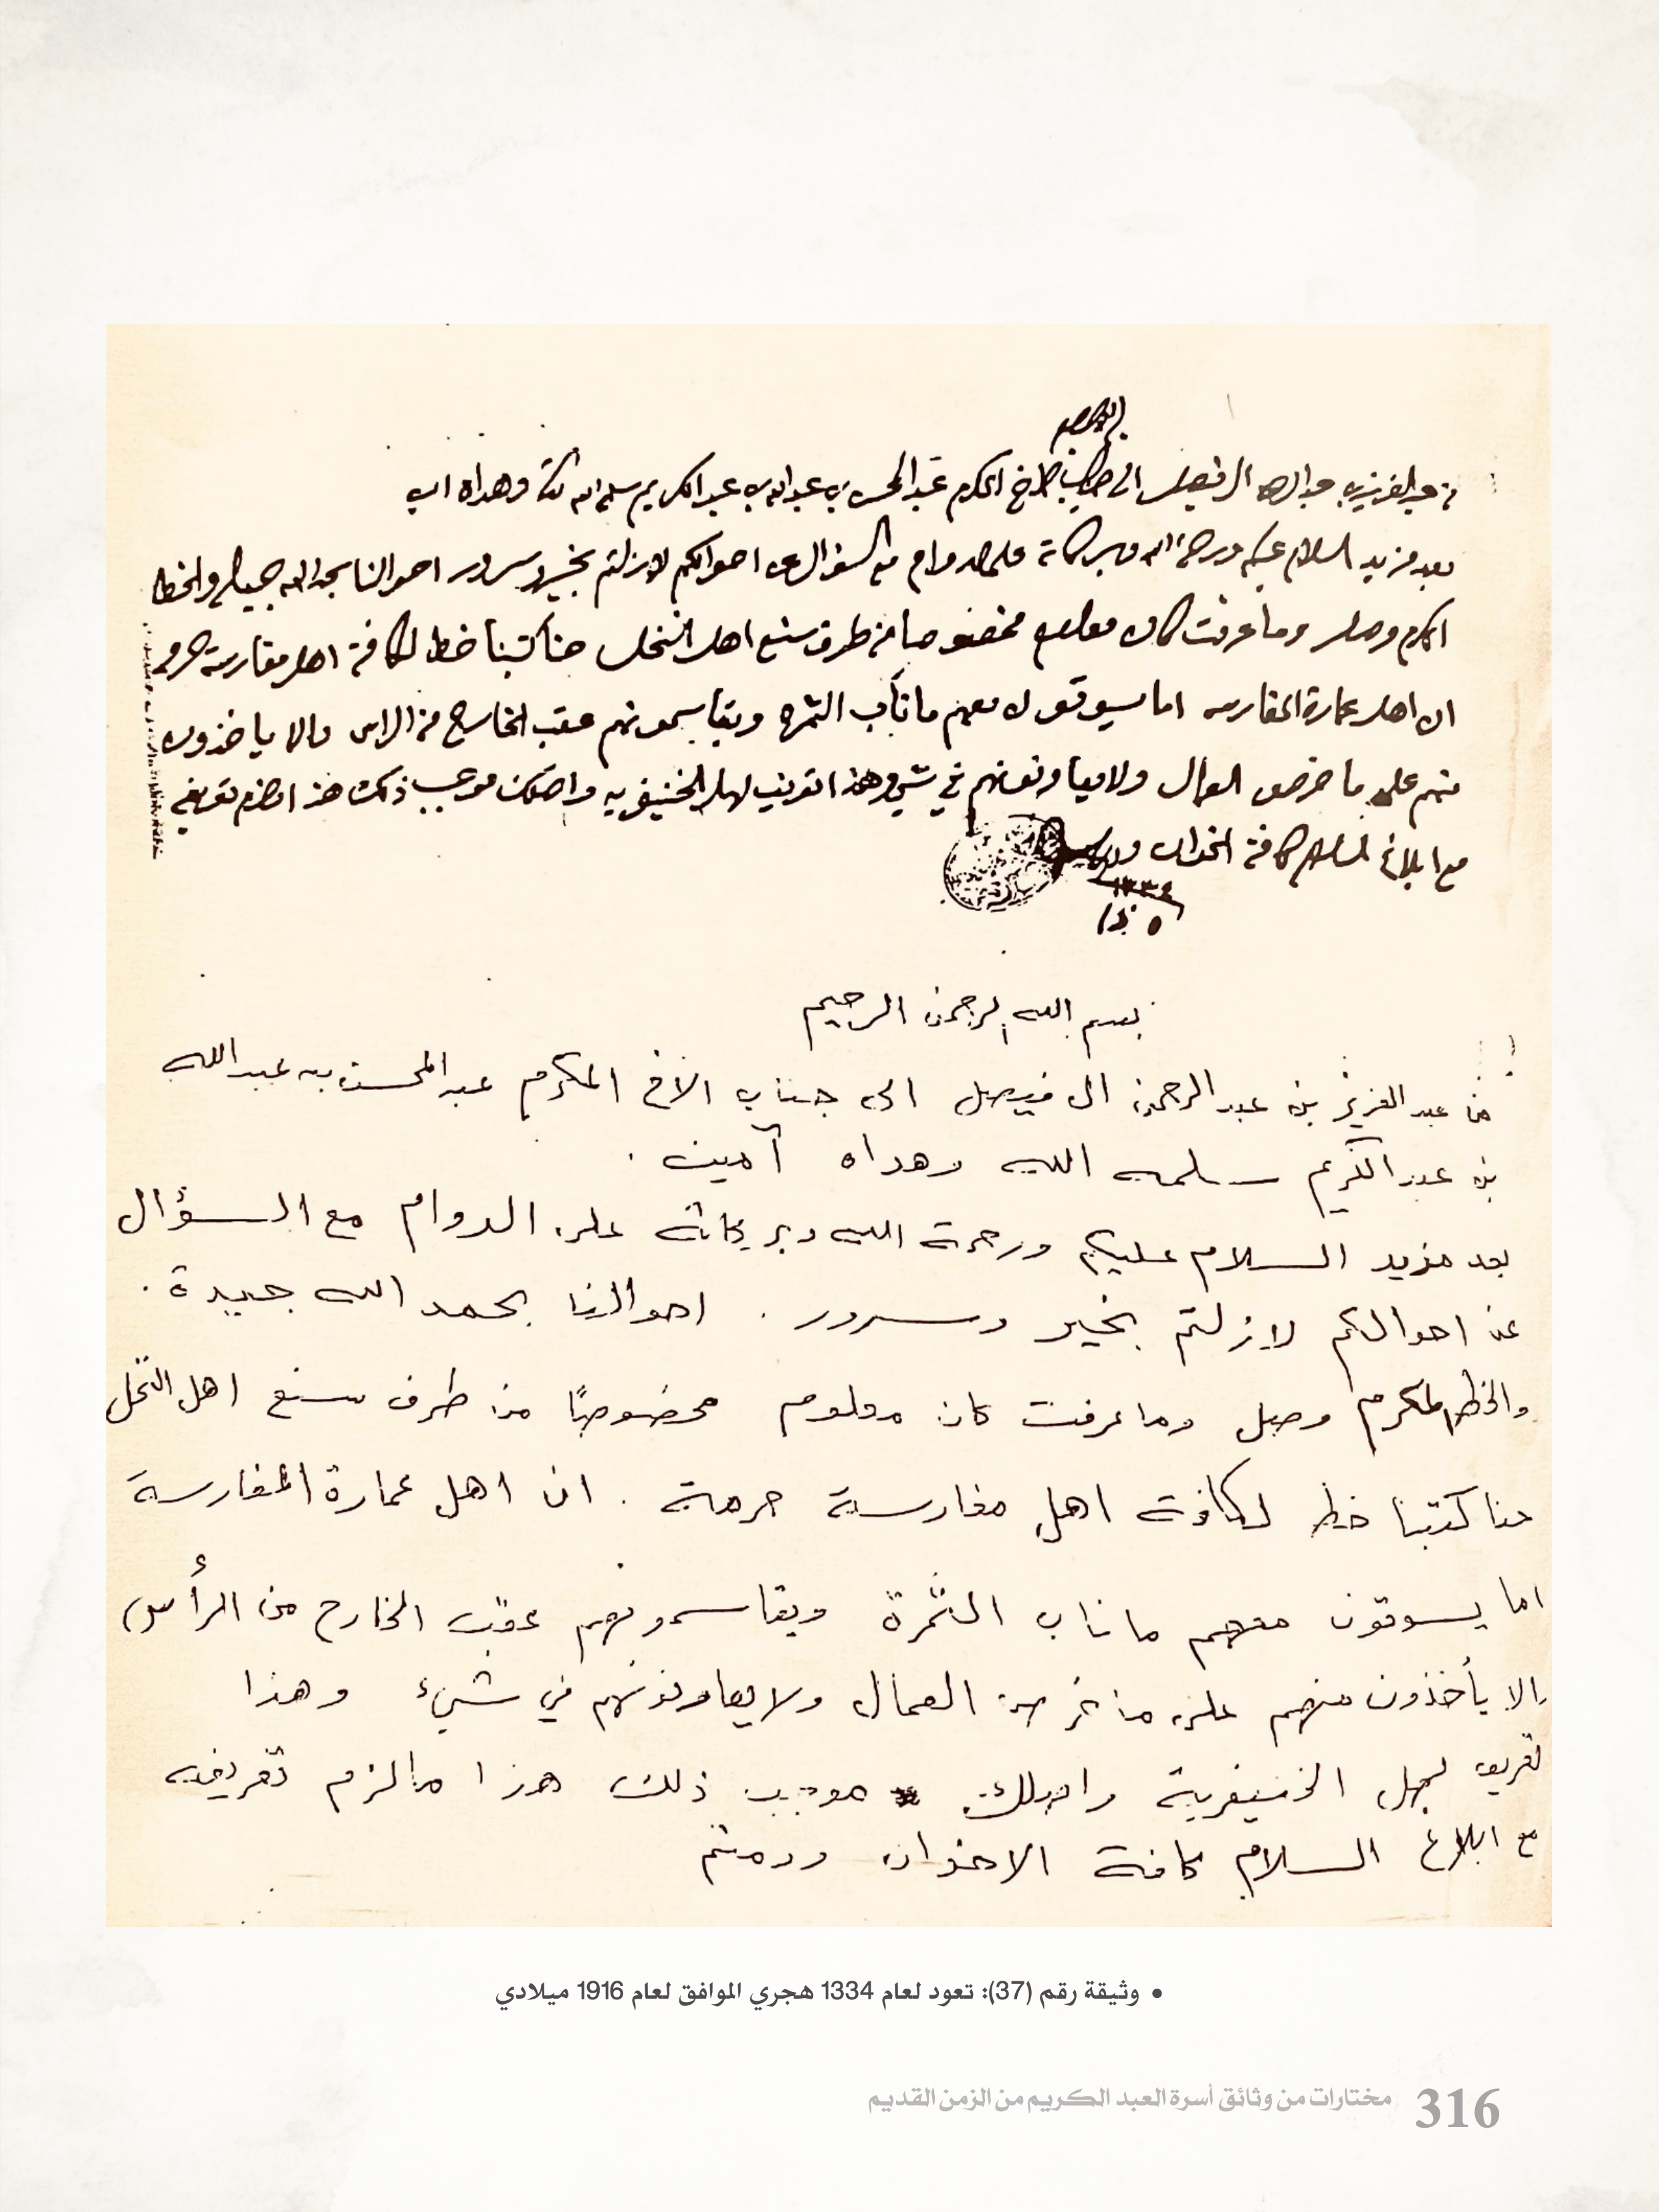 من عبدالعزيز بن عبدالرحمن ال فيصل الى جناب الاخ المكرم عبدالمحسن بن عبدالله بن عبدالكريم سلمه الله تعالى وهداه امين
بعد مزيد السلام عليكم ورحمة الله وبركاته على الدوام مع السؤال عن احوالكم لازلتم بخير وسرور احوالنا بحمد الله جميله والخط
المكرم وصل وما عرفت كان معلوم مخضوصا من طرف سنع اهل النخل حنا كتبنا خط لكافة اهل مغارسة
ان اهل عمارة المغارسه اما يسوقون معهم ماناب الثمره ويقاسمونهم عقب الخارج من الراس والا ياخذون
منهم على ما خرص العمال ولا يعاونونهم في شي وهذا تعريف لهل الخنيفريه واصلك موجب ذلك هذا مالزم تعريفه
مع ابلاغ السلام كافة الاخوان والسلام
١٣٣٤
٥
بسم الله الرحمن الرحيم
من عبد العزيز بن عبد الرحمن ال فيصل الى جناب الاخ المكرم عبد المحسن بن عبد الله
بن عبد الكريم سلمه الله وهداه آمين .
بعد مزيد السلام عليكم ورحمة الله وبركاته على الدوام مع السؤال
عن احوالكم لازلتم بخير وسرور . احوالنا بحمد الله جيدة .
والخط المكرم وصل وما عرفت كان معلوم مخضوصًا من طرف سنع اهل النخل
حنا كتبنا خط لكافة اهل مغارسة حرمة . ان اهل عمارة المغارسة
اما يسوقون معهم ماناب الثمرة ويقاسمونهم عقب الخارج من الرأس
والا يأخذون منهم على ما خرص العمال ولا يعاونونهم في شيء وهذا
تعريف لهل الخنيفرية واصلك موجب ذلك هذا مالزم تعريفه
مع ابلاغ السلام كافة الاخوان ودمتم
• وثيقة رقم (37): تعود لعام 1334 هجري الموافق لعام 1916 ميلادي
316 مختارات من وثائق أسرة العبد الكريم من الزمن القديم